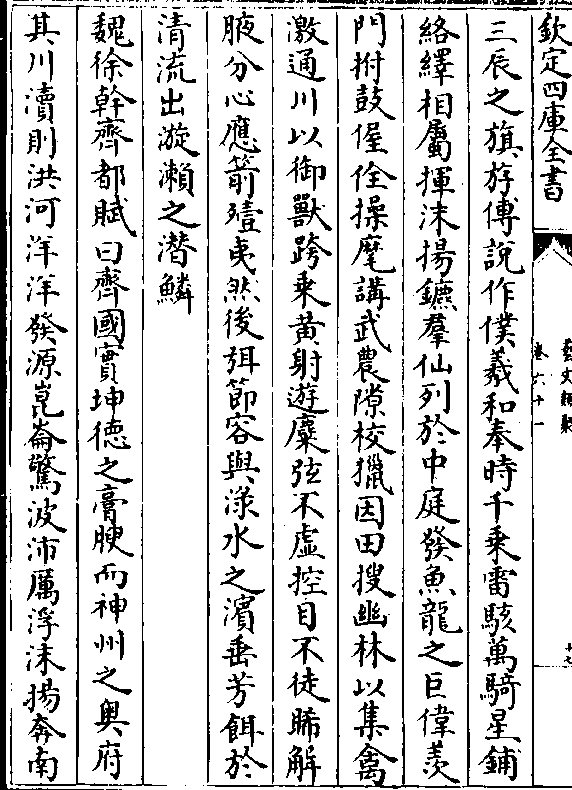 欽定四庫全書
藝文類聚
卷六十一
十七
三辰之旗斿傅說作僕羲和奉時千乘雷駭萬騎星鋪
絡繹相屬揮沫揚鑣羣仙列於中庭發魚龍之巨偉羨
門拊鼓偓佺操麾講武農隙校獵因田搜幽林以集禽
激通川以御獸跨乘黃射遊麋弦不虛控目不徒睎解
腋分心應箭殪夷然後弭節容與渌水之濱垂芳餌於
清流出漩瀨之潛鱗
魏徐幹齊都賦曰齊國實坤德之膏腴而神州之奥府
其川瀆則洪河洋洋發源崑崙驚波沛厲浮沫揚奔南